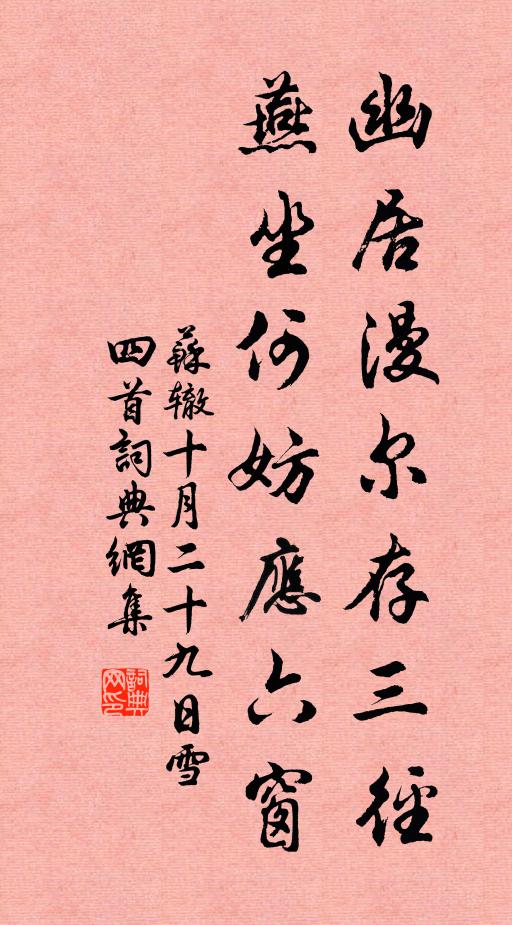 幽居漫尔存三徑
燕坐何妨應六窗
蘇辙十月二十九日雪
四首詞典網集
詞典网印